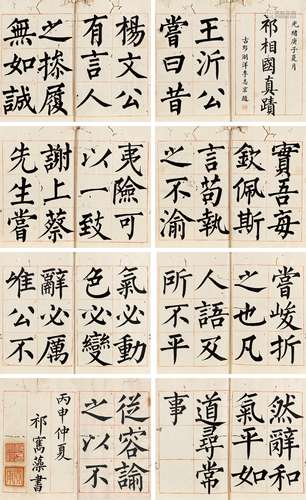 光緒庚子夏月
祁相國真蹟
李志宏題
王沂公
嘗曰昔
楊文公
有言人
之操履
無如誠
實吾每
欽佩斯
言苟執
之不渝
夷險可
以一致
謝上蔡
先生嘗
嘗峻折
之也凡
人語及
所不平
氣必動
色必變
辭必厲
唯公不
然辭和
氣平如
道尋常
事
從容諭
之以不
丙申仲夏
祁寯藻書